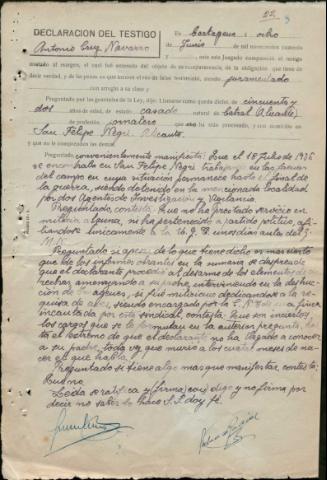 22
DECLARACION DEL TESTIGO
Antonio Cruz Navarro
En Cartagena a ocho
de Junio de mil novecientos cuarenta
ante este Juzgado compareció el testigo
anotado al margen, el cual fué enterado del objeto de su comparecencia, de la obligación que tiene de
decir verdad, y de las penas en que incurre el reo de falso testimonio, siendo juramentado
con arreglo a su clase y
Preguntado por las generales de la Ley, dijo: Llamarse como queda dicho, de cincuenta y
dos años de edad, de estado casado natural de Catral (Alicante)
de profesión jornalero que no ha sido procesado, y con domicilio en
San Felipe Neri Alicante
y que no le comprenden las demás.
Preguntado convenientemente manifiesta: Que el 18 Julio de 1936
se encontraba en San Felipe Neri trabajando en las labores
del campo en cuya situación permaneció hasta el final de
la guerra, siendo detenido en la mencionada localidad
por dos Agentes de Investigación y Vigilancia
Preguntado, contesta: Que no ha prestado servicio en
milicia alguna, ni ha pertenecido a partido político, afi-
liandose únicamente a la U.G.T. unos días antes del G.
M.N.
Preguntado si a pesar de lo que tiene dicho es mas cierto
que de los informes obrantes en la sumaria se desprende
que el declarante procedió al desarme de los elementos de de-
rechas amenazando a su padre, interviniendo en la destruc-
ción de la iglesia, si fué miliciano dedicandose a la re-
quisa de
incautada por esta sindical, contesta: Que son inciertos
los cargos que se le formulan en la anterior pregunta, has-
ta el extremo de que el declarante no ha llegado a conocer
a su padre, toda vez que murió a los cuatro meses de na-
cer el que habla.
Preguntado si tiene algo mas que manifestar contesta:
Que no.
Leida se ratifica y firma con S.S. digo y no firma por
decir no saber lo hace S.S. doy fé.